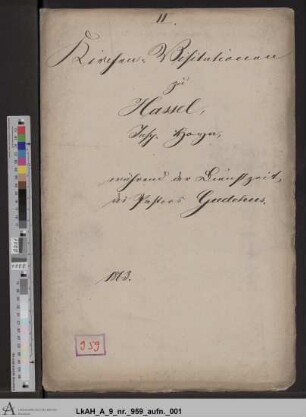 II.
Kirchen-Visitationen
zu
Hassel,
Insp. Hoya,
während der Dienstzeit
des Pastors
1863.
959
LkAH_A_9_nr._959_aufn._001